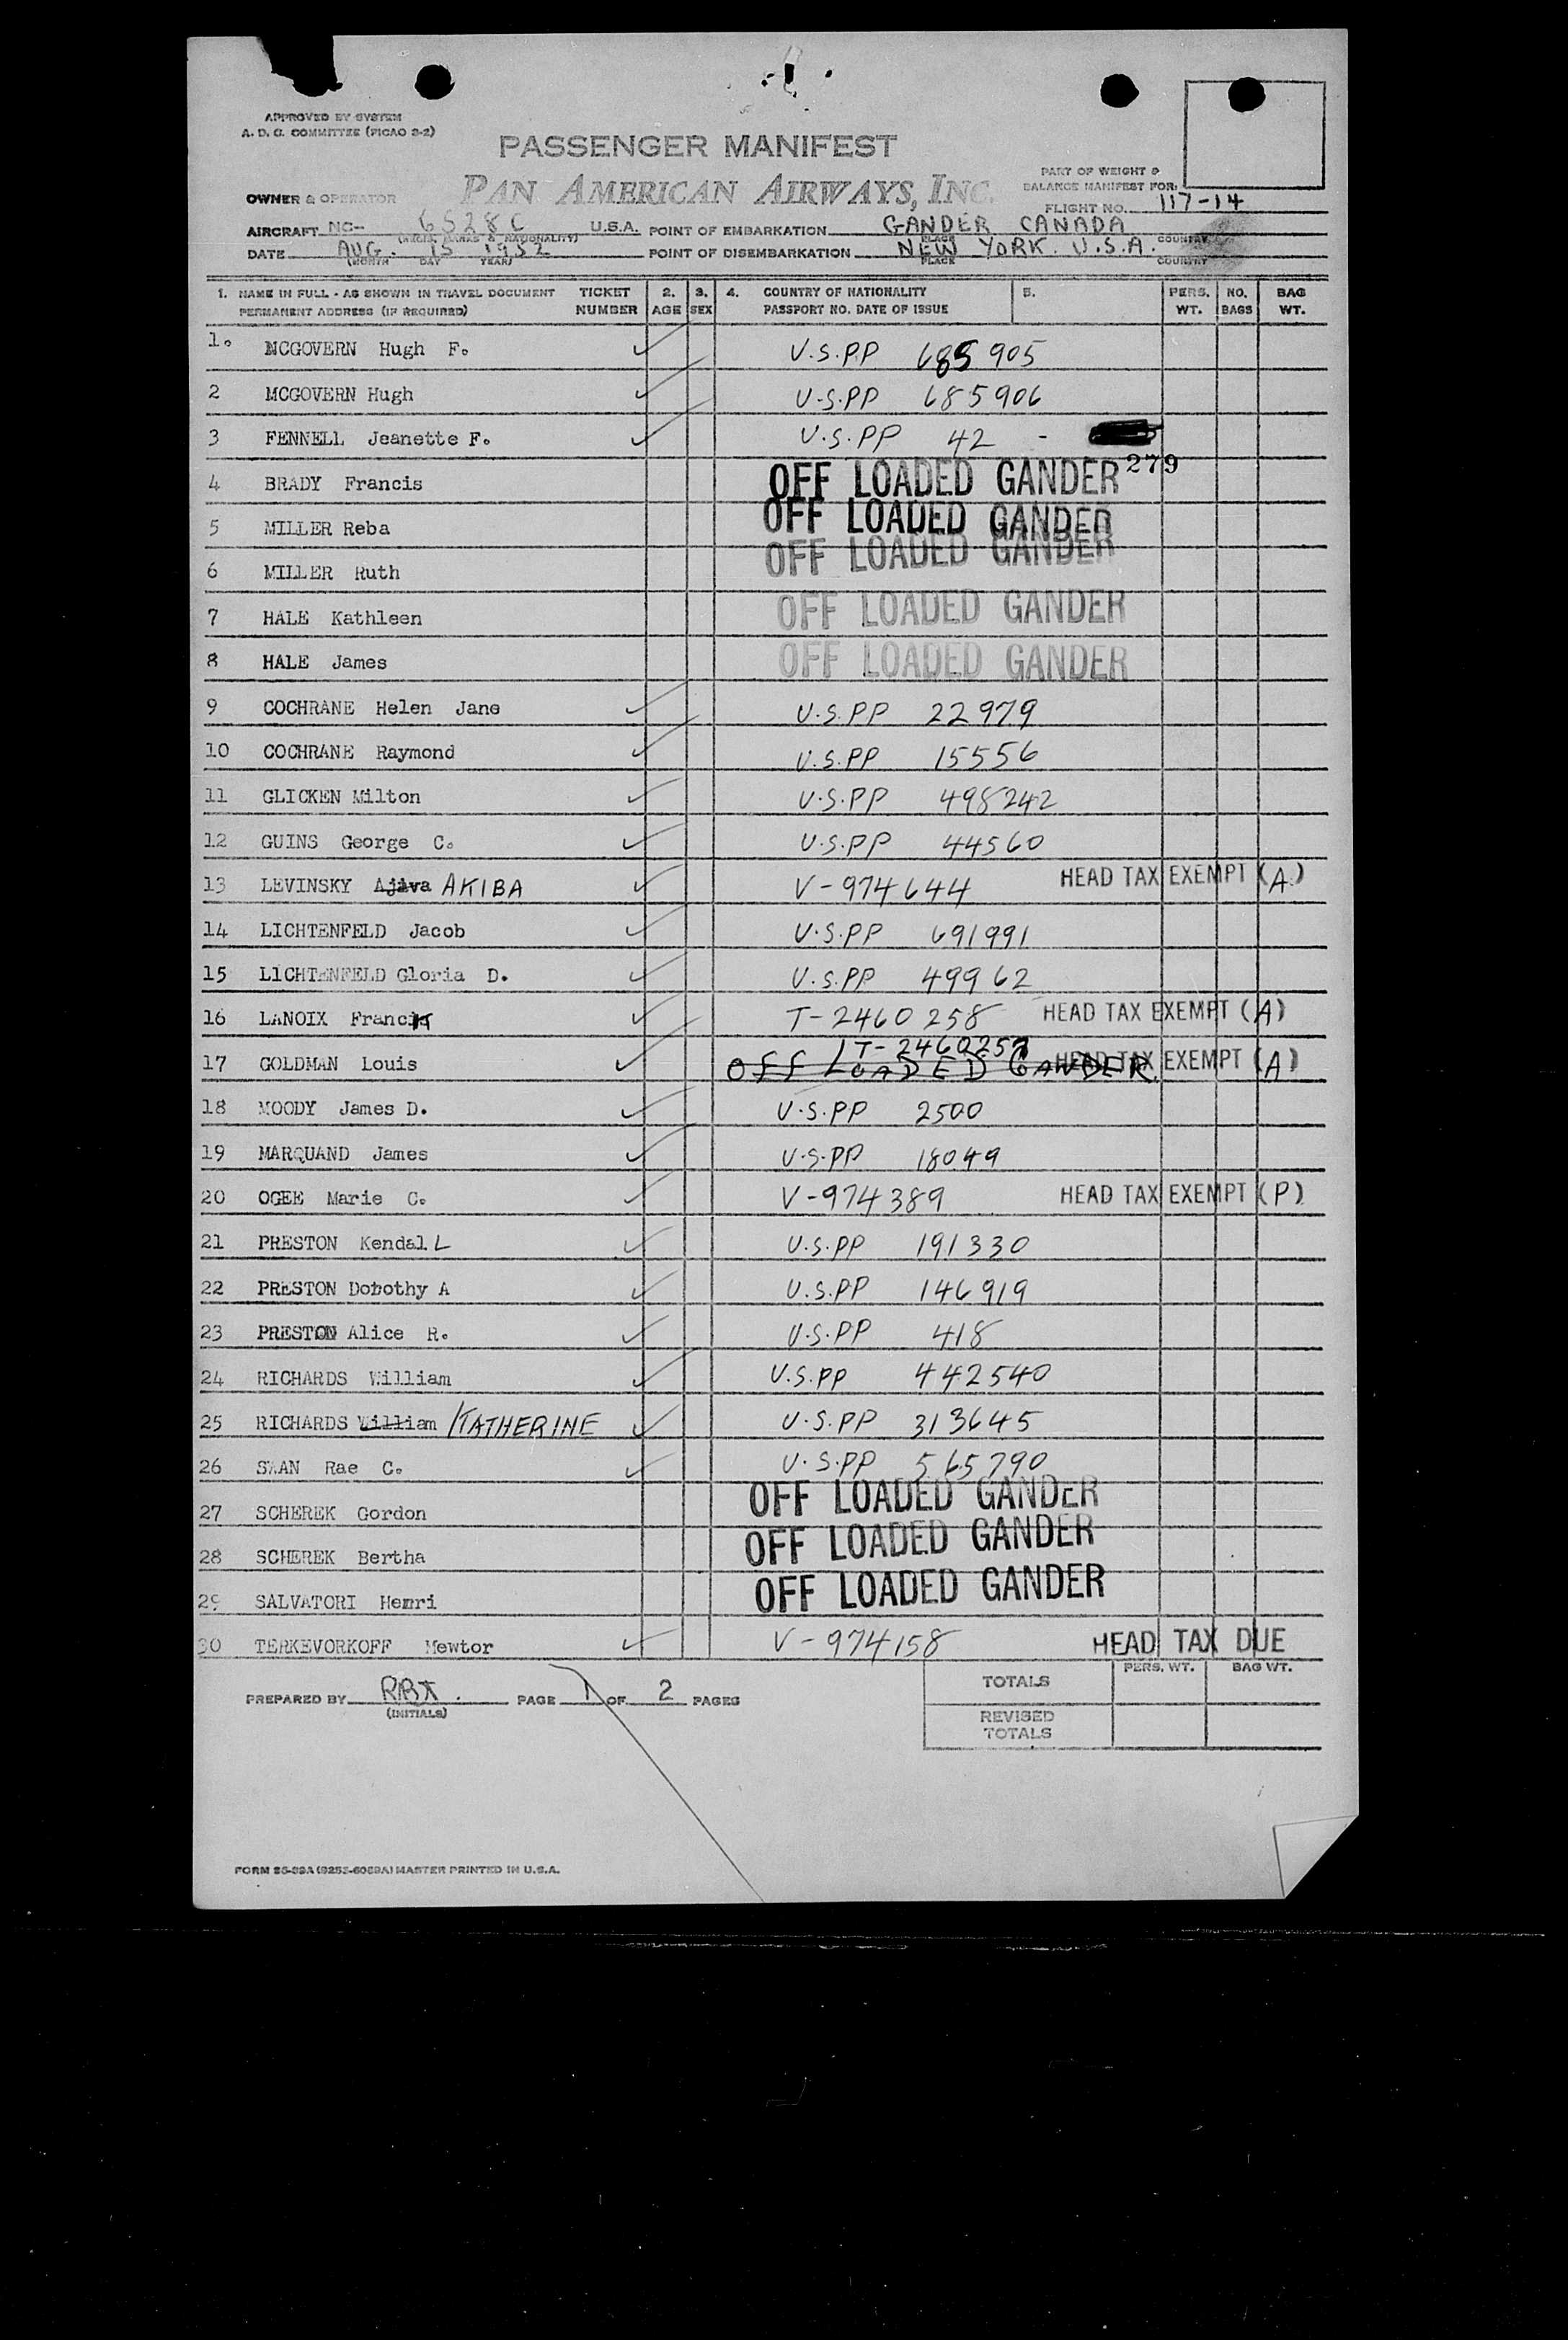 APPROVED BY SYSTEM
A. D. G. COMMITTEE (FICAO 3-2)
PASSENGER MANIFEST
PAN AMERICAN AIRWAYS, INC.
PART OF WEIGHT &
BALANCE MANIFEST FOR:
OWNER & OPERATOR
FLIGHT NO. 117-14
AIRCRAFT NC- 6528C U.S.A. POINT OF EMBARKATION GANDER CANADA
(REGIS. MARKS & NATIONALITY) PLACE COUNTRY
DATE AUG. 15 1952 POINT OF DISEMBARKATION NEW YORK. U.S.A.
(MONTH DAY YEAR) PLACE COUNTRY
1. NAME IN FULL - AS SHOWN IN TRAVEL DOCUMENT TICKET 2. 3. 4. COUNTRY OF NATIONALITY 5. PERS. NO. BAG
PERMANENT ADDRESS (IF REQUIRED) NUMBER AGE SEX PASSPORT NO. DATE OF ISSUE WT. BAGS WT.
1. MCGOVERN Hugh F. ✓ U.S.PP 685905
2 MCGOVERN Hugh ✓ U.S.PP 685906
3 FENNELL Jeanette F. ✓ U.S.PP 42 -
279
4 BRADY Francis OFF LOADED GANDER
5 MILLER Reba OFF LOADED GANDER
6 MILLER Ruth OFF LOADED GANDER
7 HALE Kathleen OFF LOADED GANDER
8 HALE James OFF LOADED GANDER
9 COCHRANE Helen Jane ✓ U.S.PP 22979
10 COCHRANE Raymond ✓ U.S.PP 15556
11 GLICKEN Milton ✓ U.S.PP 498242
12 GUINS George C. ✓ U.S.PP 44560
13 LEVINSKY Ajiva AKIBA ✓ V-974644 HEAD TAX EXEMPT (A)
14 LICHTENFELD Jacob ✓ U.S.PP 691991
15 LICHTENFELD Gloria D. ✓ U.S.PP 49962
16 LANOIX Francis ✓ T-2460258 HEAD TAX EXEMPT (A)
T-2460257
17 GOLDMAN Louis ✓ OFF LOADED GANDER HEAD TAX EXEMPT (A)
18 MOODY James D. ✓ U.S.PP 2500
19 MARQUAND James ✓ U.S.PP 18049
20 OGEE Marie C. ✓ V-974389 HEAD TAX EXEMPT (P)
21 PRESTON Kendal L ✓ U.S.PP 191330
22 PRESTON Dorothy A ✓ U.S.PP 146919
23 PRESTON Alice R. ✓ U.S.PP 418
24 RICHARDS William ✓ U.S.PP 442540
25 RICHARDS William KATHERINE ✓ U.S.PP 313645
26 Rae C. ✓ U.S.PP 565790
27 SCHEREK Gordon OFF LOADED GANDER
28 SCHEREK Bertha OFF LOADED GANDER
29 SALVATORI Henri OFF LOADED GANDER
30 TERKEVORKOFF Mewtor ✓ V-974158 HEAD TAX DUE
PERS. WT. BAG WT.
TOTALS
PREPARED BY PAGE 1 OF 2 PAGES
(INITIALS)
REVISED
TOTALS
FORM 36-39A (9253-6089A) MASTER PRINTED IN U.S.A.